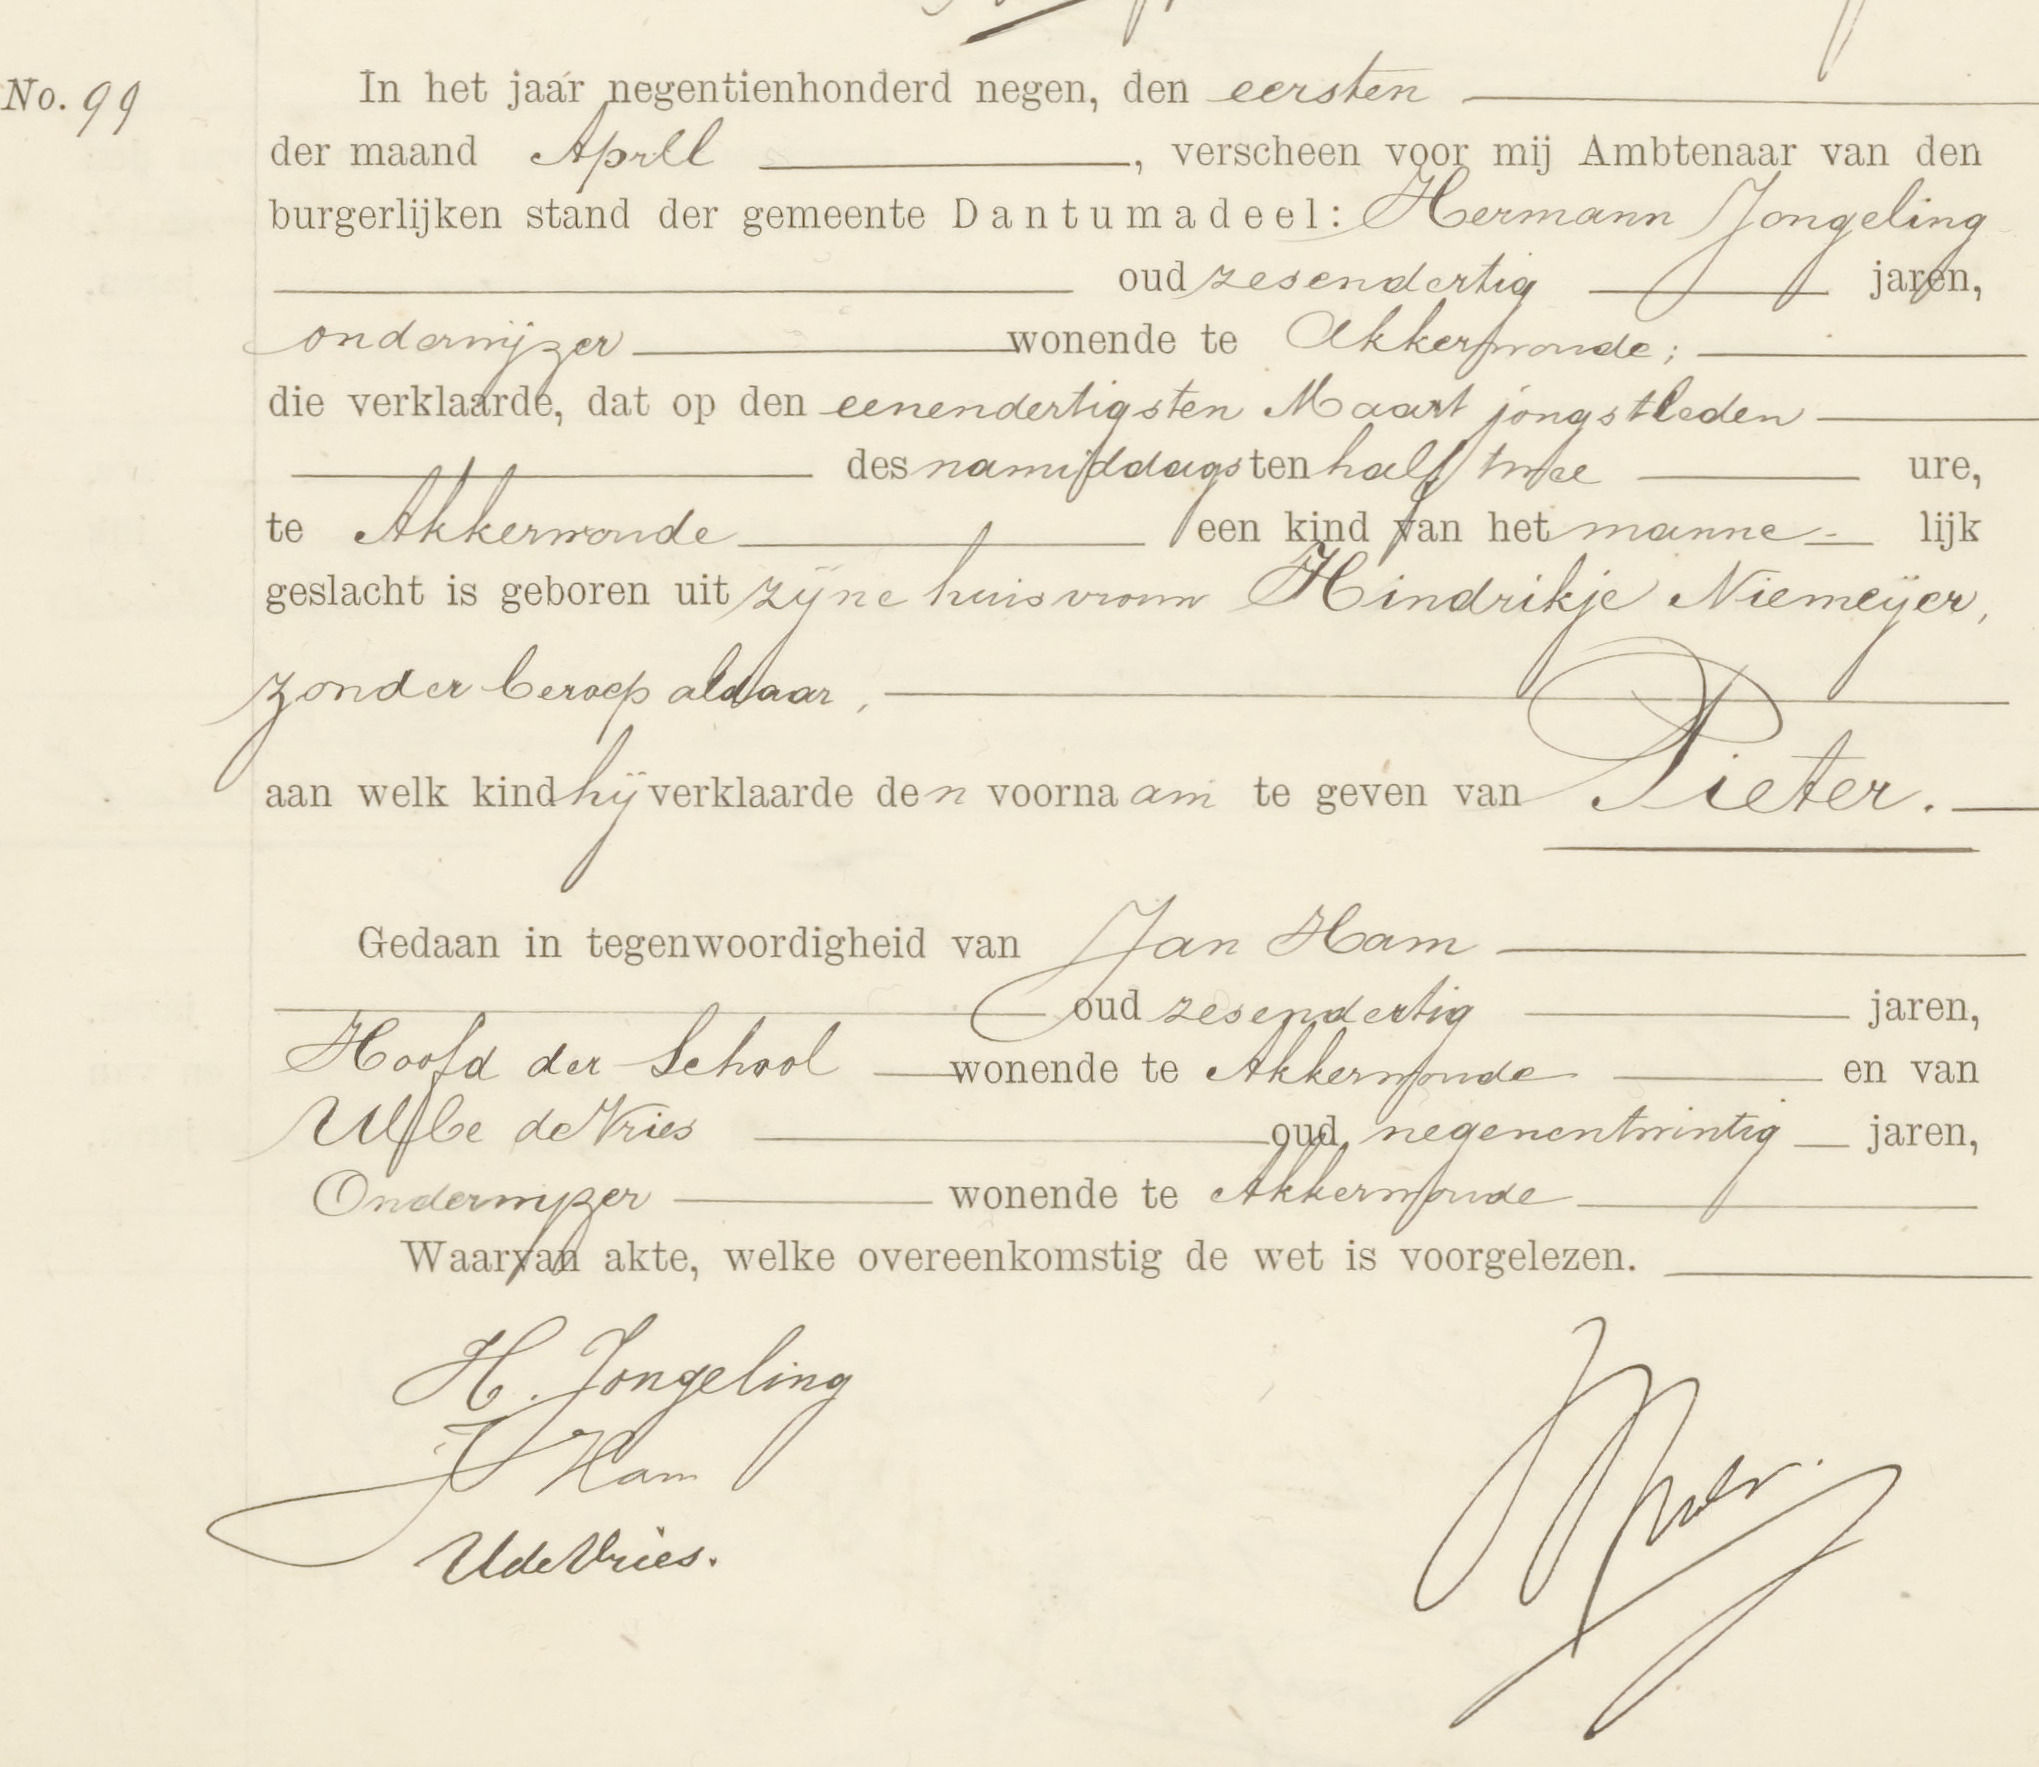 No. 99
In het jaar negentienhonderd negen, den eersten
der maand April, verscheen voor mij Ambtenaar van den
burgerlijken stand der gemeente Dantumadeel: Hermann Jongeling
oud zesendertig jaren,
onderwijzer wonende te Akkerwoude;
die verklaarde, dat op den eenendertigsten Maart jongstleden
des namiddags ten half twee ure,
te Akkerwoude een kind van het manne- lijk
geslacht is geboren uit zijne huisvrouw Hindrikje Niemeijer,
zonder beroep aldaar,
aan welk kind hij verklaarde den voornaam te geven van Pieter.
Gedaan in tegenwoordigheid van Jan Ham
oud zesendertig jaren,
Hoofd der School wonende te Akkerwoude en van
Ulbe de Vries oud negenentwintig jaren,
Onderwijzer wonende te Akkerwoude
Waarvan akte, welke overeenkomstig de wet is voorgelezen.
H. Jongeling
J Ham
U de Vries.